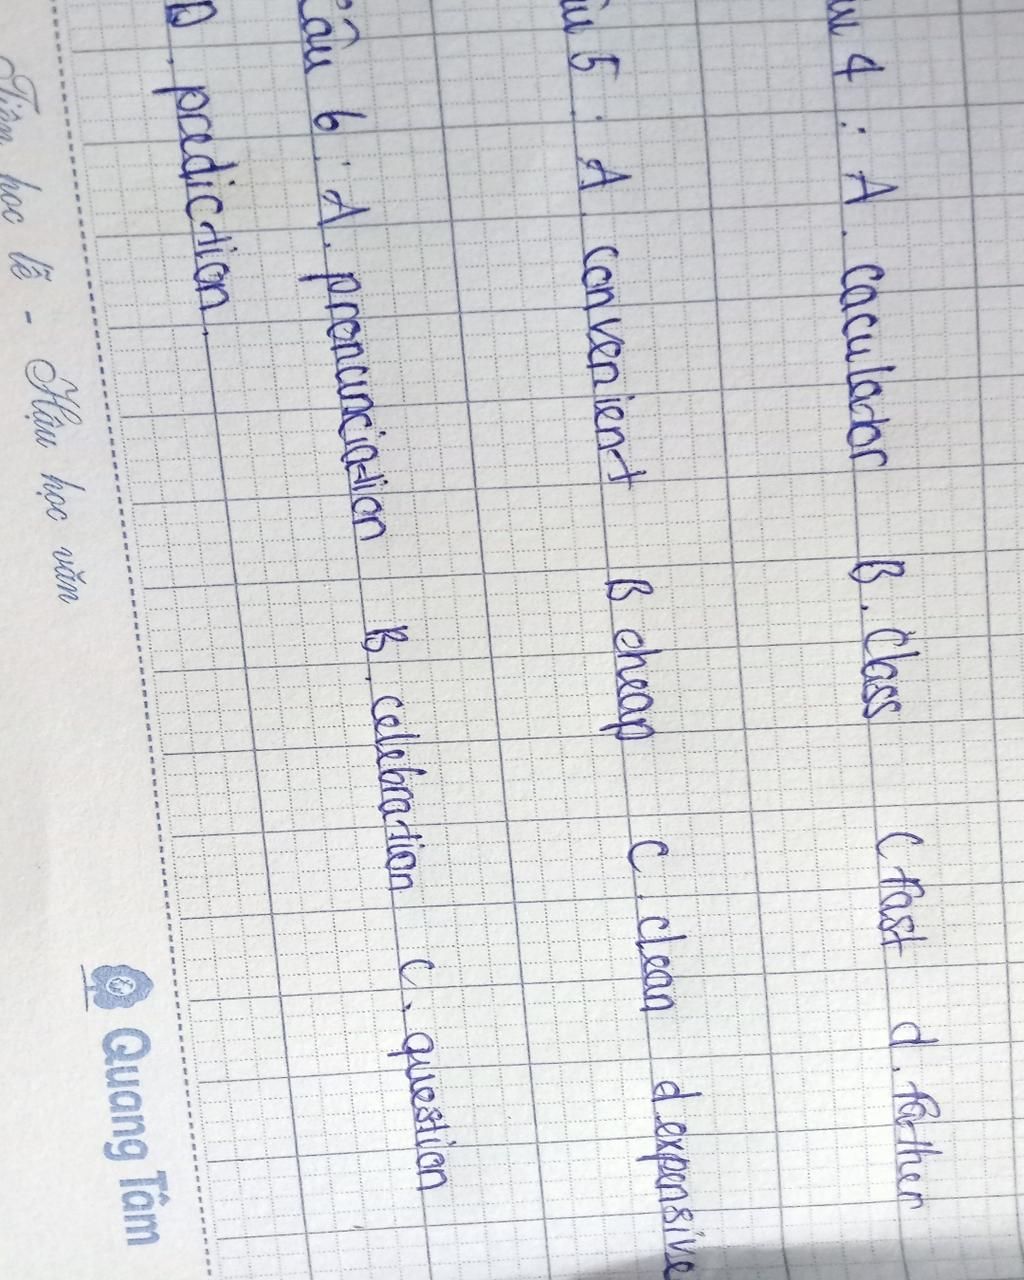 4 : A. caculator B. class C fast d. father
5 : A. convenient B cheap C. clean d. expensive
Câu 6 : A. pronunciation B. celebration C. question
D. prediction.
Tiên học lễ - Hậu học văn
Quang Tâm